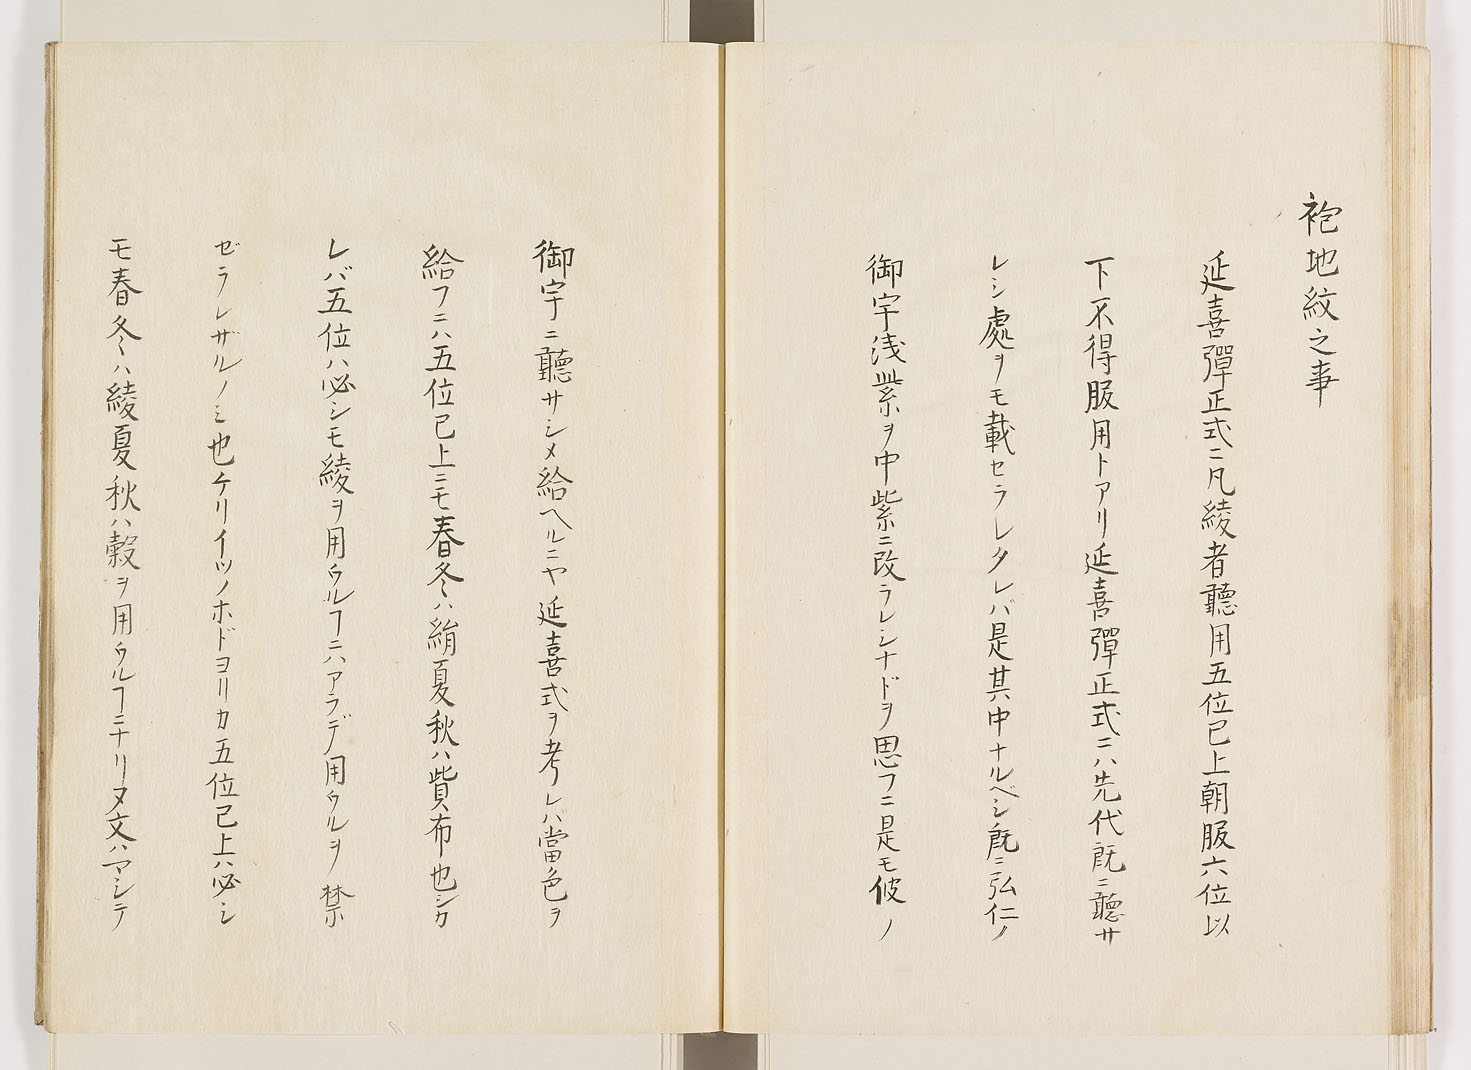 袍地紋之事
延喜彈正式ニ凡綾者聽用五位已上朝服六位以
下不得服用トアリ延喜彈正式ニハ先代既ニ聽サ
レシ處ヲモ載セラレタレバ是其中ナルベシ既ニ弘仁ノ
御宇浅紫ヲ中紫ニ改ラレシナドヲ思フニ是モ彼ノ
御宇ニ聽サシメ給ヘルニヤ延喜式ヲ考レバ當色ヲ
給フニハ五位已上ニモ春冬ハ絹夏秋ハ貲布也シカ
レバ五位ハ必シモ綾ヲ用ウルヿニハアラデ用ウルヲ禁
ゼラレザルノミ也ケリイツノホドヨリカ五位已上ハ必シ
モ春冬ハ綾夏秋ハ縠ヲ用ウルヿニナリヌ文ハマシテ